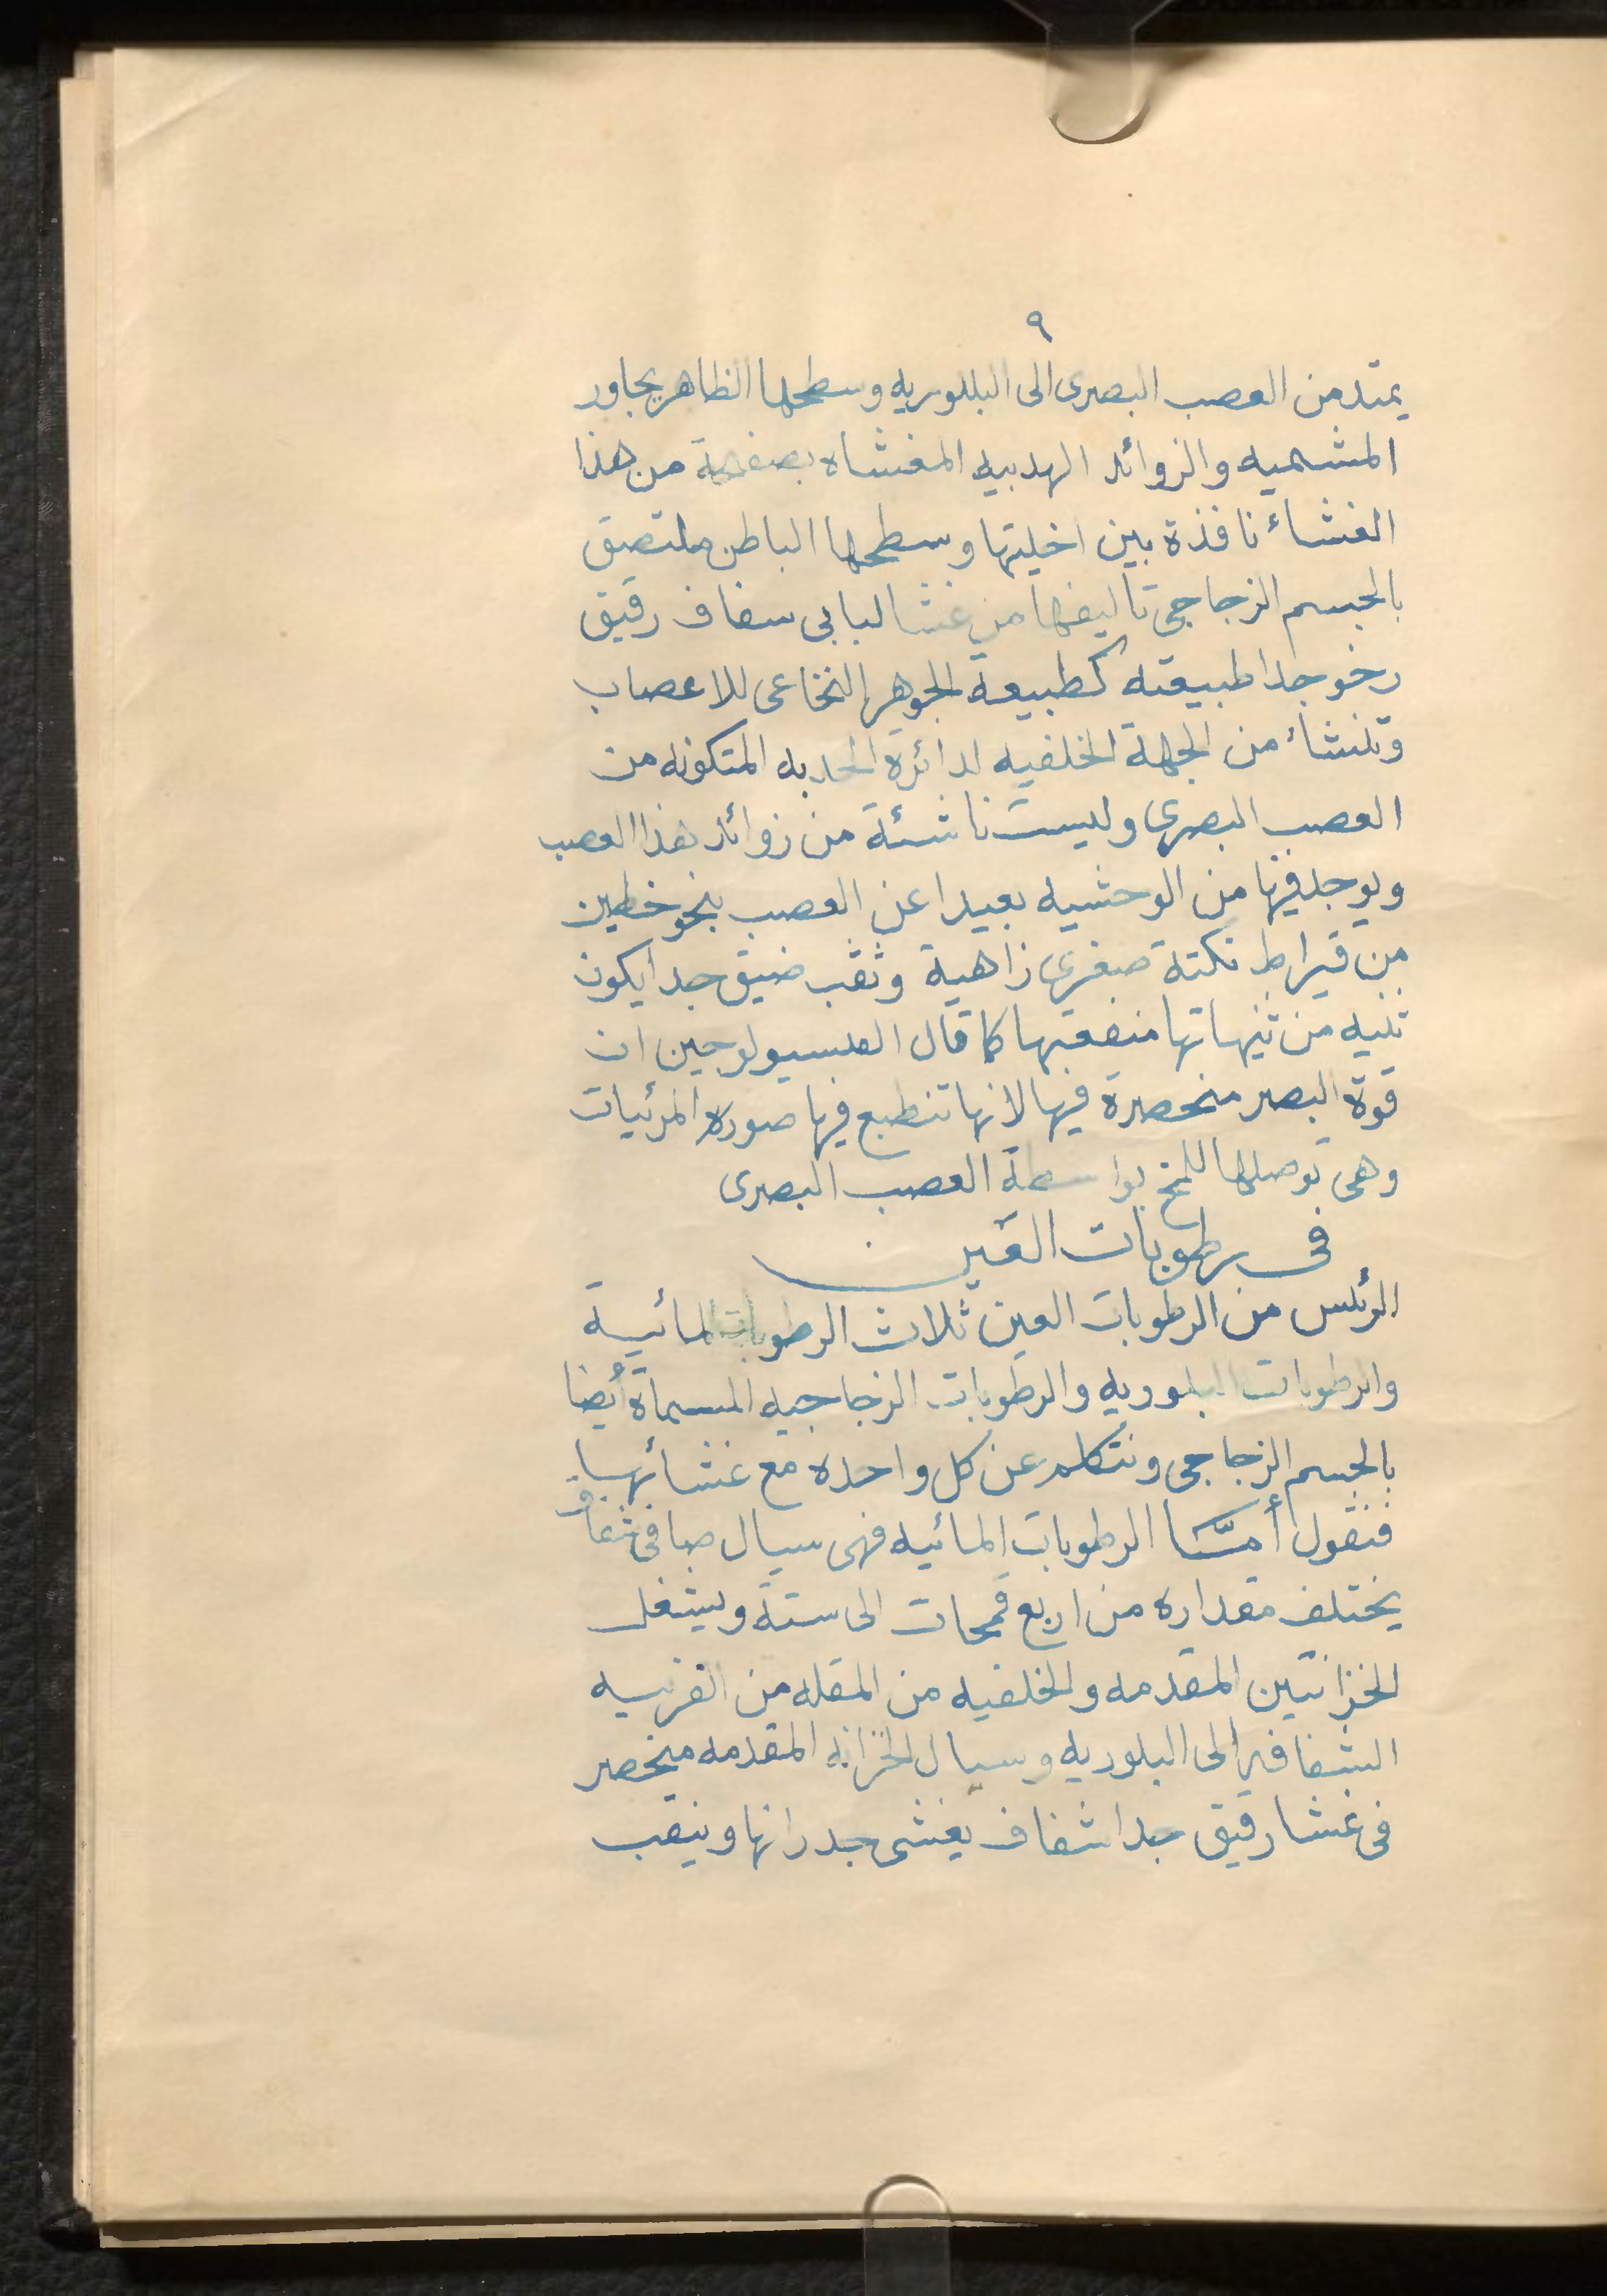 ٩
يمتد من العصب البصرى الى البللوريه وسطحها الظاهر يجاور
المشميه والزوائد الهدبيه المغشاه بصفحة من هذا
الغشاء نافذة بين اخليتها وسطحها الباطن ملتصق
بالجسم الزجاجى تاليفها من غشا لبابى سفاف رقيق
رخو جدا طبيعته كطبيعة الجوهر النخاعى للاعصاب
وتنشاء من الجهة الخلفيه لدائرة الحدبه المتكونه من
العصب البصرى وليست ناشئة من زوائد هذا العصب
ويوجد فيها من الوحشيه بعيدا عن العصب بنحو خطين
من قيراط نكتة صغرى زاهية وثقب ضيق جدا يكون
ثنيه من ثنياتها منفعتها كما قال الفلسيولوجين ان
قوة البصر منحصرة فيها لانها تنطبع فيها صورة المرئيات
وهى توصلها للمخ بواسطة العصب البصرى
فى رطوبات العين
الرئس من الرطوبات العين ثلاث الرطوبات المائية
والرطوبات البلوريه والرطوبات الزجاجيه المسماة أيضا
بالجسم الزجاجى ونتكلم عن كل واحده مع غشائها
فنقول أمّا الرطوبات المائيه فهى سيال صافى شفاف
يختلف مقداره من اربع قمحات الى ستة ويشغل
الخزانتين المقدمه والخلفيه من المقله من القرنيه
الشفافيه الى البلوريه وسيال الخزانه المقدمه منحصر
فى غشا رقيق جدا شفاف يغشى جدرانها ويثقب